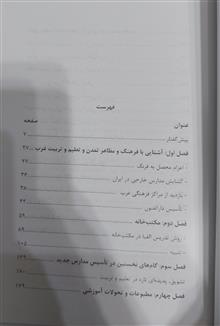 فهرست
عنوان صفحه
پیش‌گفتار ۷
فصل اول: آشنایی با فرهنگ و مظاهر تمدن و تعلیم و تربیت غرب ۲۷
- اعزام محصل به فرنگ
- گشایش مدارس خارجی در ایران
- بازدید از مراکز فرهنگی غرب
- تأسیس دارالفنون
فصل دوم: مکتب‌خانه
- روش تدریس الفبا در مکتب‌خانه
- تنبیه
فصل سوم: گام‌های نخستین در تأسیس مدارس جدید
تشویق، پدیده‌ای تازه در تعلیم و تربیت
فصل چهارم: مطبوعات و تحولات آموزشی